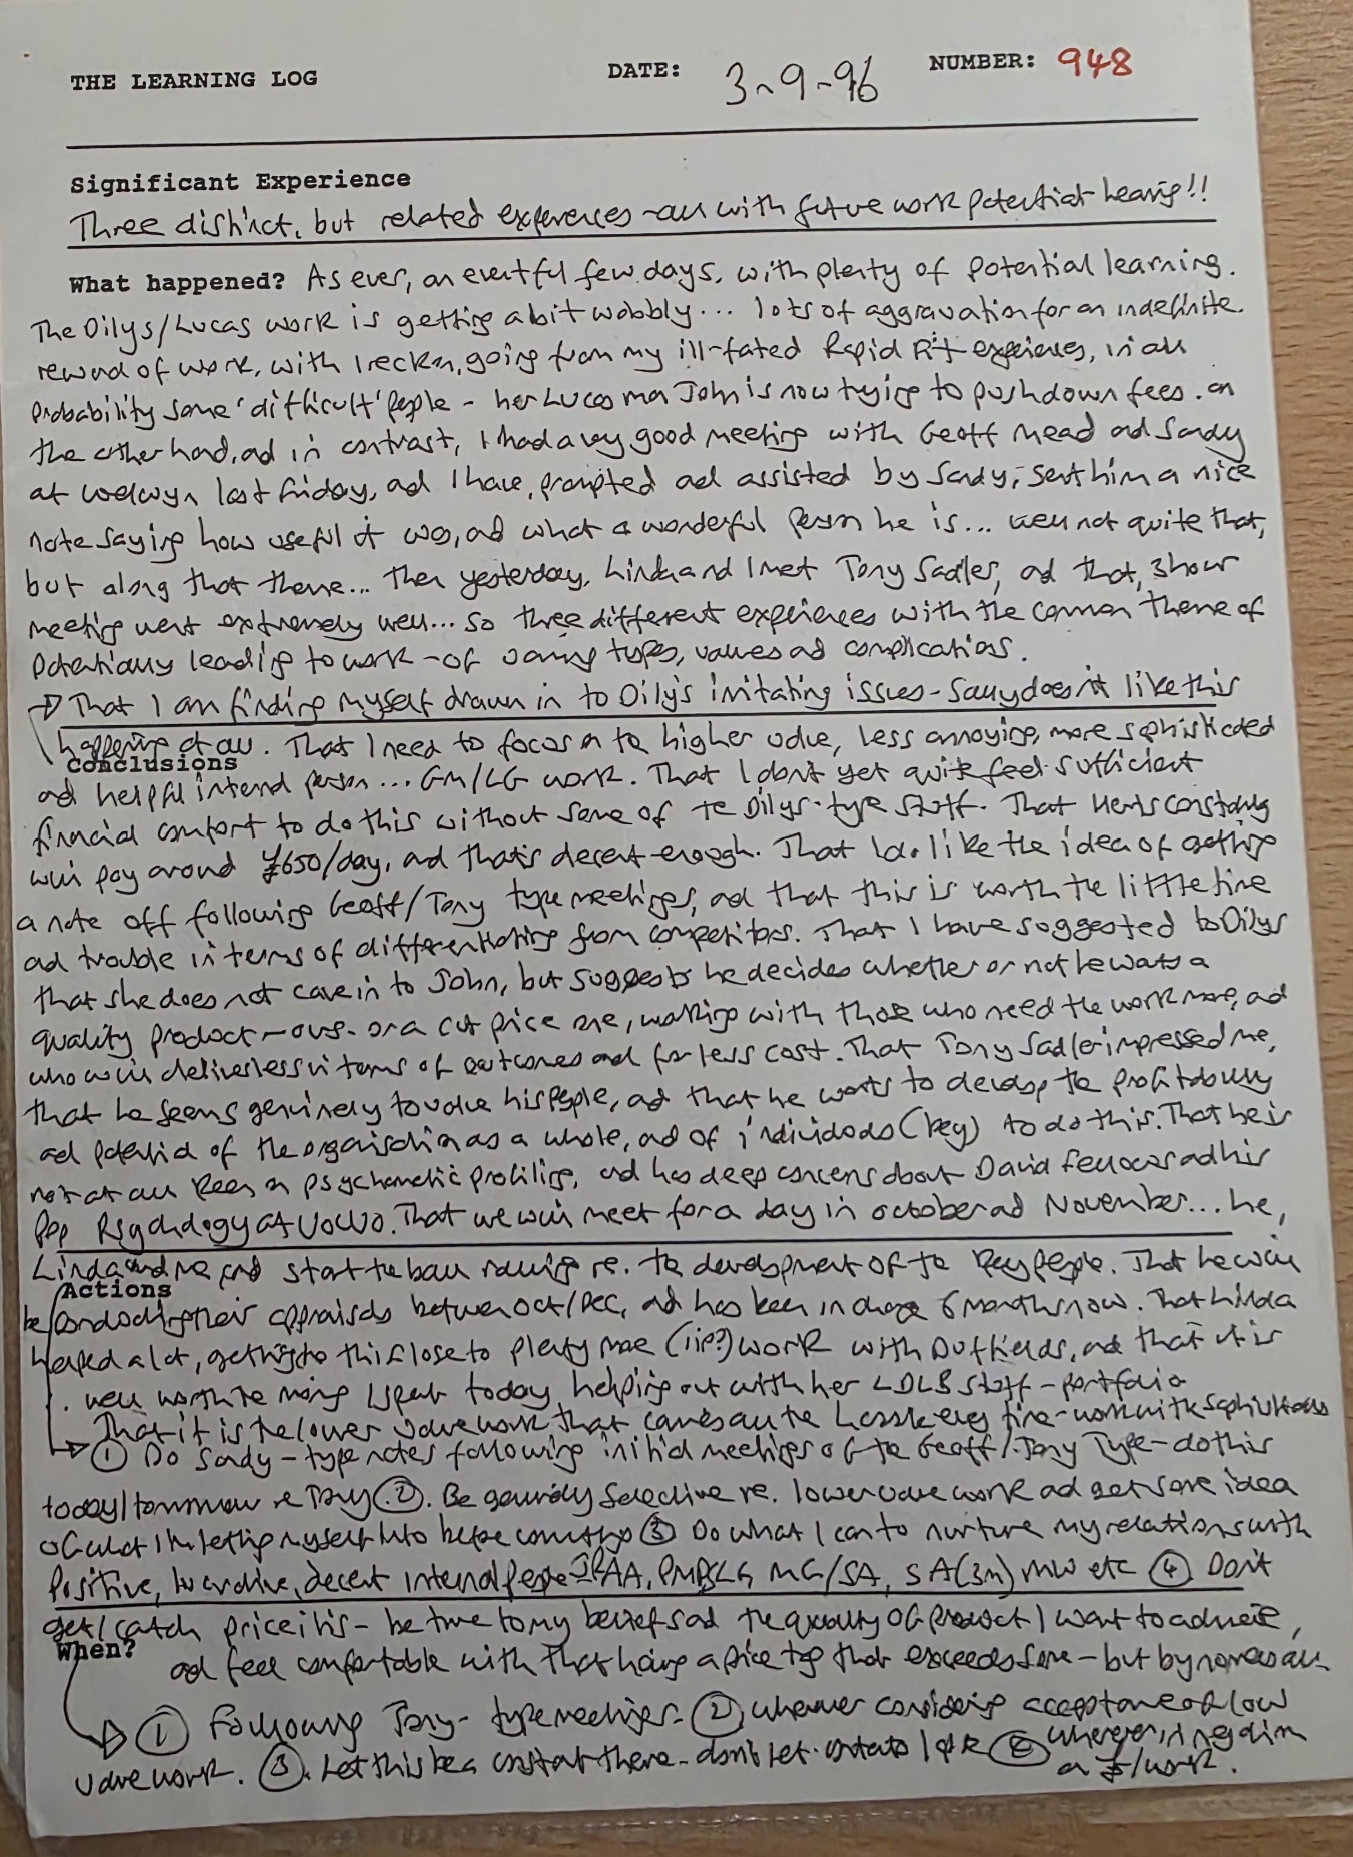 THE LEARNING LOG DATE: 3-9-96 NUMBER: 948
Significant Experience
Three distinct, but related experiences - all with future work potential leaning!!
What happened? As ever, an eventful few days, with plenty of potential learning.
The Dilys/Lucas work is getting a bit wobbly... lots of aggravation for an indefinite
reward of work, with I reckon, going from my ill-fated Rapid Fit experiences, in all
probability some 'difficult' people - her Lucas man John is now trying to push down fees. On
the other hand, and in contrast, I had a very good meeting with Geoff Mead and Sandy
at Welwyn last Friday, and I have, prompted and assisted by Sandy, sent him a nice
note saying how useful it was, and what a wonderful person he is... well not quite that,
but along that theme... Then yesterday, Linda and I met Tony Sadler, and that, 3 hour
meeting went extremely well... so three different experiences with the common theme of
potentially leading to work - of varying types, values and complications.
That I am finding myself drawn in to Dilys's irritating issues - Sally doesn't like this
happening at all. That I need to focus on the higher value, less annoying, more sophisticated
Conclusions
and helpful internal person... GM/LG work. That I don't yet quite feel sufficient
financial comfort to do this without some of the Dilys-type stuff. That Herts Constably
will pay around £650/day, and that's decent enough. That I do like the idea of getting
a note off following Geoff/Tony type meetings, and that this is worth the little time
and trouble in terms of differentiating from competitors. That I have suggested to Dilys
that she does not cave in to John, but suggests he decides whether or not he wants a
quality product - ours - or a cut price one, working with those who need the work more, and
who will deliver less in terms of outcomes and for less cost. That Tony Sadler impressed me,
that he seems genuinely to value his people, and that he wants to develop the profitability
and potential of the organisation as a whole, and of individuals (key) to do this. That he is
not at all keen on psychometric profiling, and has deep concerns about David and his
Pop Psychology at Volvo. That we will meet for a day in October and November... he,
Linda and me and start the ball rolling re. the development of the key people. That he will
Actions
be conducting their appraisals between Oct/Dec, and has been in charge 6 months now. That Linda
helped a lot, getting to this close to plenty more work with Duffields, and that it is
well worth the money I spent today helping out with her LDLB stuff - portfolio
That it is the lower value work that causes all the hassle every time - work with
① Do Sandy-type notes following initial meetings of the Geoff/Tony Type - do this
today/tomorrow re Tony. ② Be genuinely selective re. lower value work and get some idea
of what I'm letting myself into before coming ③ Do what I can to nurture my relations with
positive, lucrative, decent internal people - AA, LG, MG/SA, SA (3m) MW etc ④ Don't
get/catch priceitis - be true to my beliefs and the quality of product I want to
When?
and feel comfortable with that having a price tag that exceeds some - but by no means all.
① Following Tony-type meetings. ② Whenever considering acceptance of low
value work. ③ Let this be a constant theme - don't let contacts whenever in reg dim
a £/work.